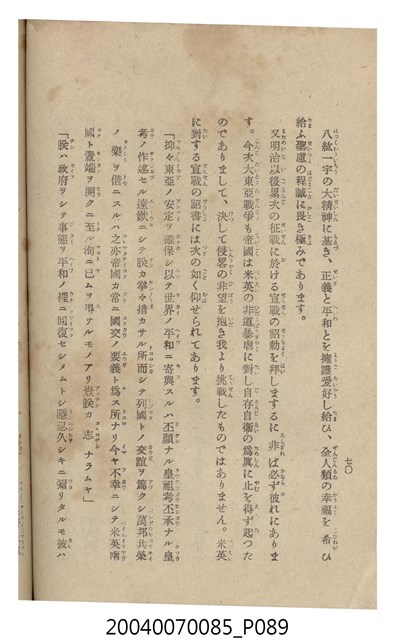 七〇
八紘一宇の大精神に基き、正義と平和とを擁護愛好し給ひ、全人類の幸福を希ひ
給ふ聖慮の程誠に畏き極みであります。
又明治以後累次の征戰に於ける宣戰の詔勅を拜しまするに非は必ず彼れにありま
す。今次大東亞戰爭も帝國は米英の非道暴虐に對し自存自衞の爲眞に止を得ず起つた
のでありまして、決して侵畧の非望を抱き我より挑戰したものではありません。米英
に對する宣戰の詔書には次の如く仰せられてあります。
「抑々東亞ノ安定ヲ確保シ以テ世界ノ平和ニ寄與スルハ丕顯ナル皇祖考丕承ナル皇
考ノ作述セル遠猷ニシテ朕カ拳々措カサル所而シテ列國トノ交誼ヲ篤クシ萬邦共榮
ノ樂ヲ偕ニスルハ之亦帝國カ常ニ國交ノ要義ト爲ス所ナリ今ヤ不幸ニシテ米英兩
國ト釁端ヲ開クニ至ル洵ニ已ムヲ得サルモノアリ豈朕カ志ナラムヤ」
「朕ハ政府ヲシテ事態ヲ平和ノ裡ニ囘復セシメムトシ隱忍久シキニ彌リタルモ彼ハ
20040070085_P089